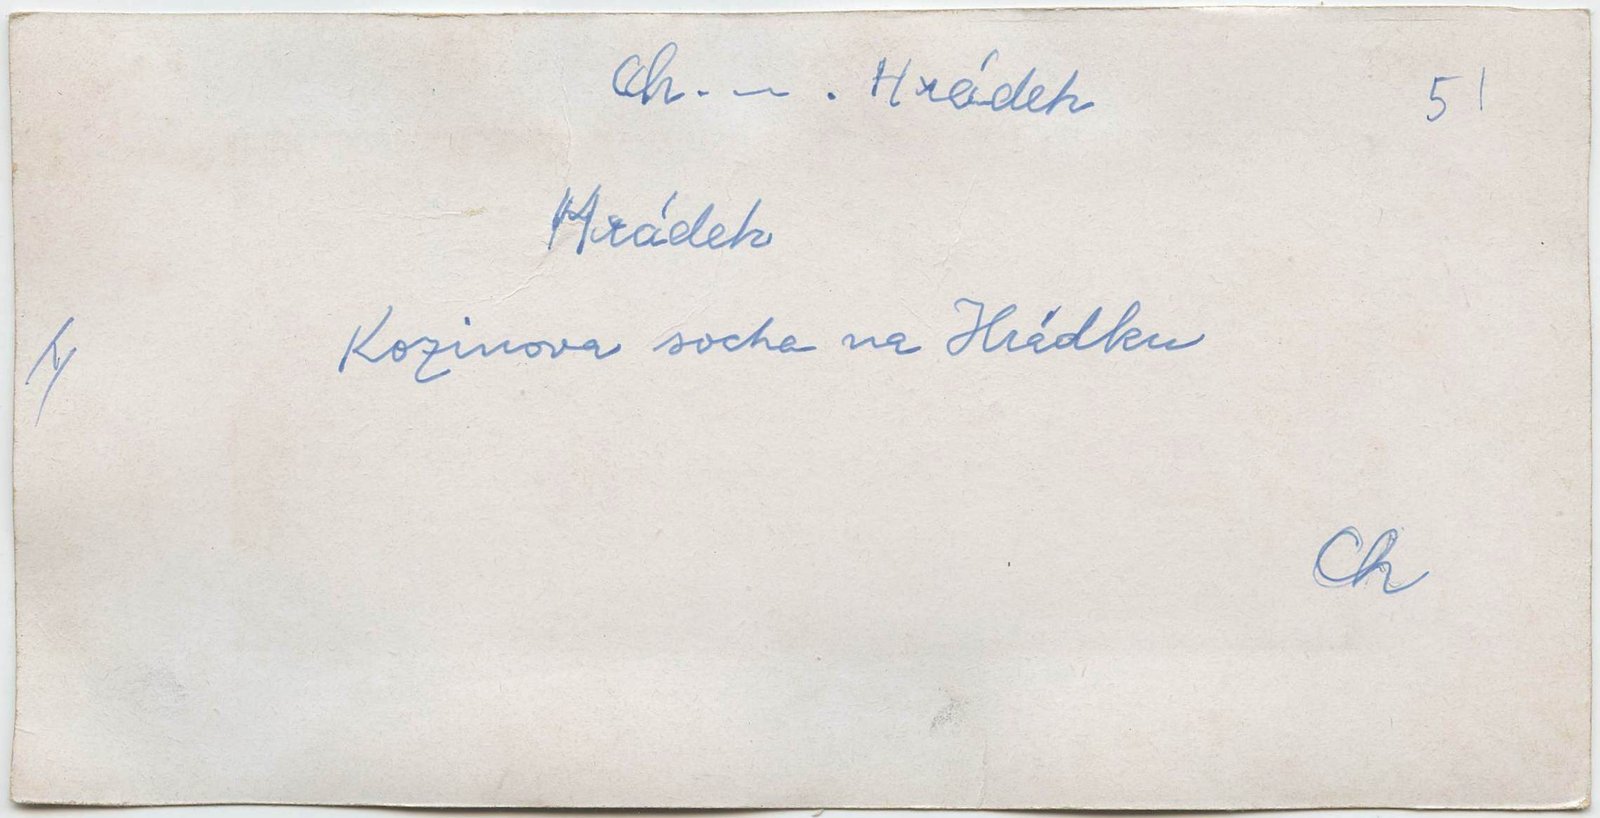 Ch. — . Hrádek 51
Hrádek
Kozinova socha na Hrádku
Ch